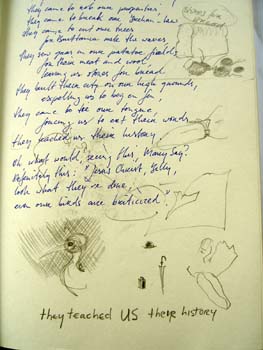 they came to rob our properties,
they came to break our Brehon law
they came to cut our trees
for Brittannia rule the waves
they sow grass in our potatoe fields,
for their meat and wool,
leaving us stones for bread.
they built their city on our high grounds,
expelling us to bog and fen,
they came to tie our tongue
forcing us to eat their words
they teached us their history,
Oh what would, seeing this, Mary Say?
Definitely this: "Jesus Christ, Billy,
look what they've done,
even our birds are barticered".
stones for bread
they teached US their history